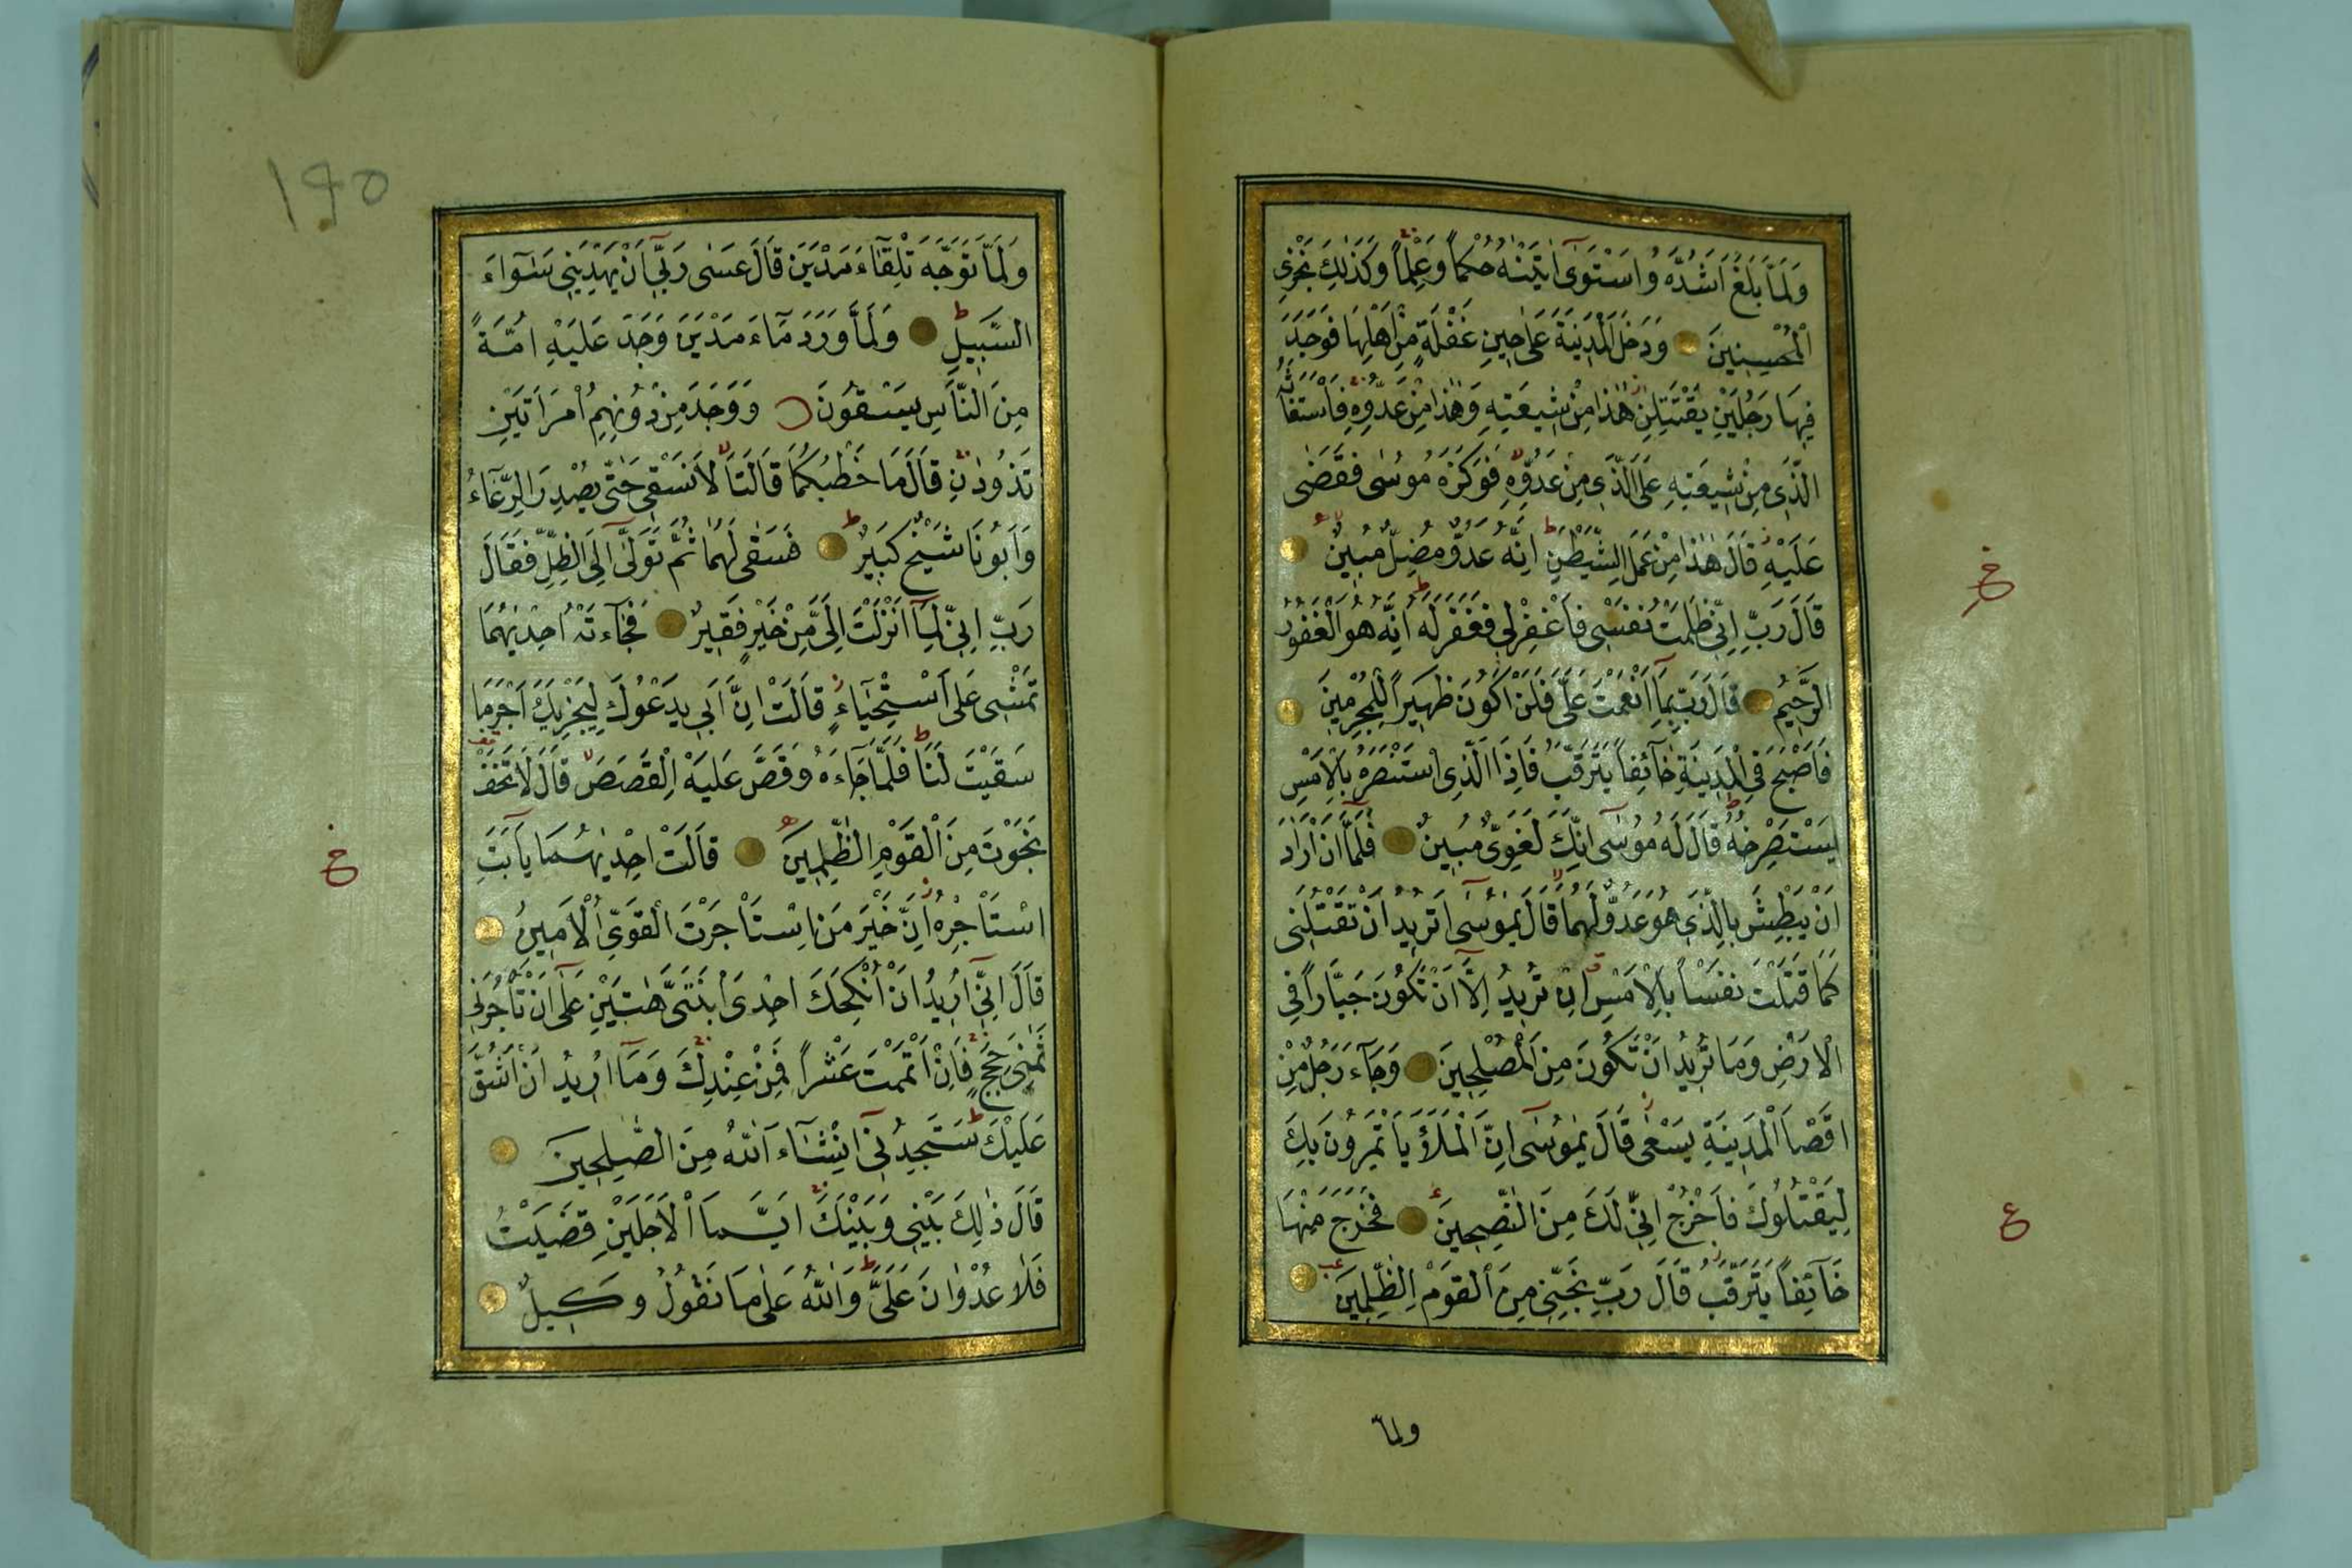 وَلَمَّا بَلَغَ اَشُدَّهُ وَاسْتَوٰى اٰتَيْنٰهُ حُكْمًا وَعِلْمًا وَكَذٰلِكَ نَجْزِى
الْمُحْسِنِينَ وَدَخَلَ الْمَدِينَةَ عَلٰى حِينِ غَفْلَةٍ مِنْ اَهْلِهَا فَوَجَدَ
فِيهَا رَجُلَيْنِ يَقْتَتِلٰنِ هٰذَا مِنْ شِيعَتِهِ وَهٰذَا مِنْ عَدُوِّهِ فَاسْتَغَاثَهُ
الَّذِى مِنْ شِيعَتِهِ عَلَى الَّذِى مِنْ عَدُوِّهِ فَوَكَزَهُ مُوسٰى فَقَضٰى
عَلَيْهِ قَالَ هٰذَا مِنْ عَمَلِ الشَّيْطٰنِ اِنَّهُ عَدُوٌّ مُضِلٌّ مُبِينٌ
قَالَ رَبِّ اِنِّى ظَلَمْتُ نَفْسِى فَاغْفِرْلِى فَغَفَرَ لَهُ اِنَّهُ هُوَ الْغَفُورُ
الرَّحِيمُ قَالَ رَبِّ بِمَا اَنْعَمْتَ عَلَىَّ فَلَنْ اَكُونَ ظَهِيرًا لِلْمُجْرِمِينَ
فَاَصْبَحَ فِى الْمَدِينَةِ خَائِفًا يَتَرَقَّبُ فَاِذَا الَّذِى اسْتَنْصَرَهُ بِالْاَمْسِ
يَسْتَصْرِخُهُ قَالَ لَهُ مُوسٰى اِنَّكَ لَغَوِىٌّ مُبِينٌ فَلَمَّا اَنْ اَرَادَ
اَنْ يَبْطِشَ بِالَّذِى هُوَ عَدُوٌّ لَهُمَا قَالَ يٰمُوسٰى اَتُرِيدُ اَنْ تَقْتُلَنِى
كَمَا قَتَلْتَ نَفْسًا بِالْاَمْسِ اِنْ تُرِيدُ اِلَّا اَنْ تَكُونَ جَبَّارًا فِى
الْاَرْضِ وَمَا تُرِيدُ اَنْ تَكُونَ مِنَ الْمُصْلِحِينَ وَجَاءَ رَجُلٌ مِنْ
اَقْصَا الْمَدِينَةِ يَسْعٰى قَالَ يٰمُوسٰى اِنَّ الْمَلَاَ يَاْتَمِرُونَ بِكَ
لِيَقْتُلُوكَ فَاخْرُجْ اِنِّى لَكَ مِنَ النّٰصِحِينَ فَخَرَجَ مِنْهَا
خَائِفًا يَتَرَقَّبُ قَالَ رَبِّ نَجِّنِى مِنَ الْقَوْمِ الظّٰلِمِينَ
ولما
ع
١٩٥
وَلَمَّا تَوَجَّهَ تِلْقَاءَ مَدْيَنَ قَالَ عَسٰى رَبِّى اَنْ يَهْدِيَنِى سَوَاءَ
السَّبِيلِ وَلَمَّا وَرَدَ مَاءَ مَدْيَنَ وَجَدَ عَلَيْهِ اُمَّةً
مِنَ النَّاسِ يَسْقُونَ وَوَجَدَ مِنْ دُونِهِمُ امْرَاَتَيْنِ
تَذُودٰنِ قَالَ مَا خَطْبُكُمَا قَالَتَا لَا نَسْقِى حَتّٰى يُصْدِرَ الرِّعَاءُ
وَاَبُونَا شَيْخٌ كَبِيرٌ فَسَقٰى لَهُمَا ثُمَّ تَوَلّٰى اِلَى الظِّلِّ فَقَالَ
رَبِّ اِنِّى لِمَا اَنْزَلْتَ اِلَىَّ مِنْ خَيْرٍ فَقِيرٌ فَجَاءَتْهُ اِحْدٰيهُمَا
تَمْشِى عَلَى اسْتِحْيَاءٍ قَالَتْ اِنَّ اَبِى يَدْعُوكَ لِيَجْزِيَكَ اَجْرَ مَا
سَقَيْتَ لَنَا فَلَمَّا جَاءَهُ وَقَصَّ عَلَيْهِ الْقَصَصَ قَالَ لَا تَخَفْ
نَجَوْتَ مِنَ الْقَوْمِ الظّٰلِمِينَ قَالَتْ اِحْدٰيهُمَا يَا اَبَتِ
اسْتَاْجِرْهُ اِنَّ خَيْرَ مَنِ اسْتَاْجَرْتَ الْقَوِىُّ الْاَمِينُ
قَالَ اِنِّى اُرِيدُ اَنْ اُنْكِحَكَ اِحْدَى ابْنَتَىَّ هٰتَيْنِ عَلٰى اَنْ تَاْجُرَنِى
ثَمٰنِىَ حِجَجٍ فَاِنْ اَتْمَمْتَ عَشْرًا فَمِنْ عِنْدِكَ وَمَا اُرِيدُ اَنْ اَشُقَّ
عَلَيْكَ سَتَجِدُنِى اِنْ شَاءَ اللّٰهُ مِنَ الصّٰلِحِينَ
قَالَ ذٰلِكَ بَيْنِى وَبَيْنَكَ اَيَّمَا الْاَجَلَيْنِ قَضَيْتُ
فَلَا عُدْوَانَ عَلَىَّ وَاللّٰهُ عَلٰى مَا نَقُولُ وَكِيلٌ